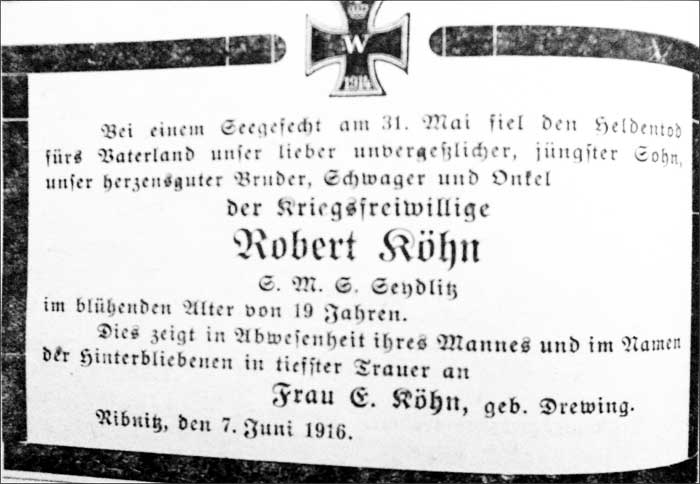 W
1914
Bei einem Seegefecht am 31. Mai fiel den Heldentod
fürs Vaterland unser lieber unvergeßlicher, jüngster Sohn,
unser herzensguter Bruder, Schwager und Onkel
der Kriegsfreiwillige
Robert Köhn
S. M. S. Seydlitz
im blühenden Alter von 19 Jahren.
Dies zeigt in Abwesenheit ihres Mannes und im Namen
der Hinterbliebenen in tiefster Trauer an
Frau E. Köhn, geb. Drewing.
Ribnitz, den 7. Juni 1916.